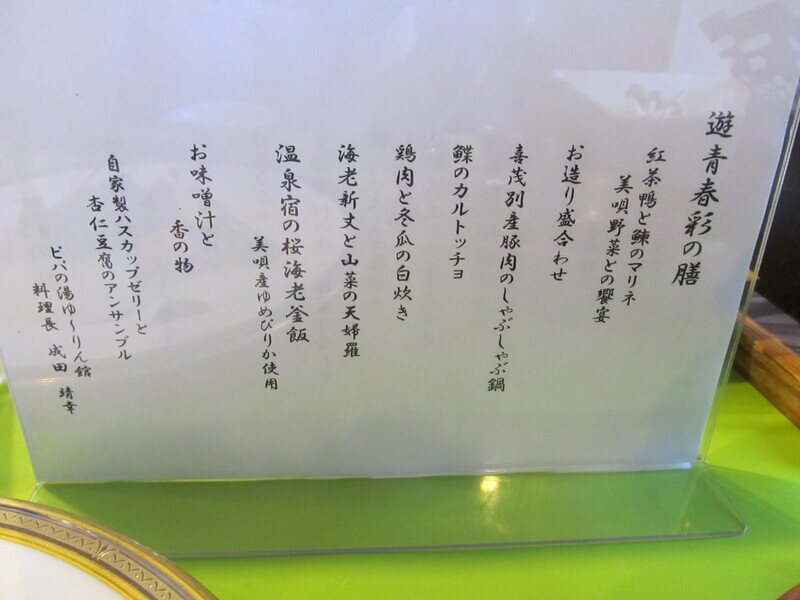 遊青春彩の膳
紅茶鴨と鰊のマリネ
美唄野菜との饗宴
お造り盛合わせ
喜茂別産豚肉のしゃぶしゃぶ鍋
鰈のカルトッチョ
鶏肉と冬瓜の白炊き
海老新丈と山菜の天婦羅
温泉宿の桜海老釜飯
美唄産ゆめぴりか使用
お味噌汁と
香の物
自家製ハスカップゼリーと
杏仁豆腐のアンサンブル
ピパの湯ゆ～りん館
料理長 成田 靖幸